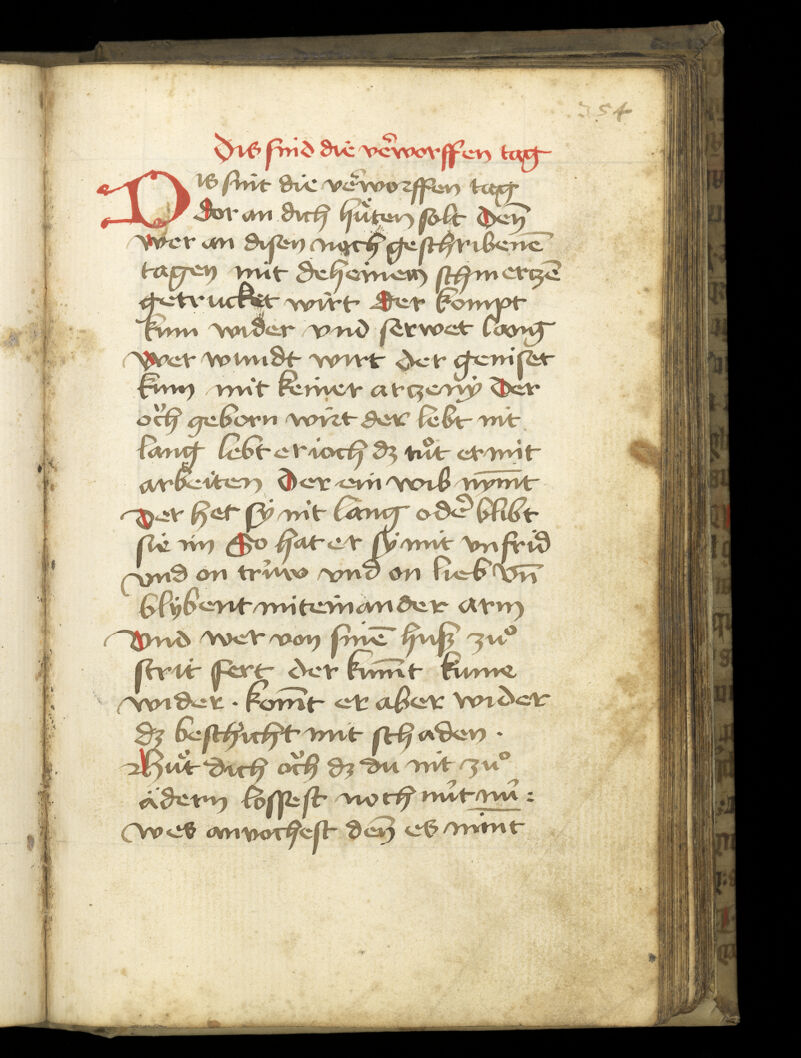 354
Dis sind die verworffen tag
Dis sint die verworffen tag
dor an dich huͤten solt Den̄
wer an disen noch geschribenē
tagen mit deheinem schmertzē
getrucket wirt der kompt
kum wider vnd serwet lang
wer wundt wirt der geniset
kum mit keiner artzeny Der
oͮch geborn wirt der lebt nit
lang lebt er ioch dz tuͦt er mit
arbeiten Der ein wib nym̄t
der het sy nit lang oder blibt
sie im So hat er sy mit vnfrid
vnd on trúw vnd on lieb vn̄
blybent mit einander arm
vnd wer von sinē husz zuͦ
strit fert der kum̄t kume
wider · kom̄t er aber wider
dz beschicht mit schaden ·
Huͤt dich oͮch dz du nit zuͦ
ädern lossest noch nút nú :
wes anvochest den̄ es nim̄t